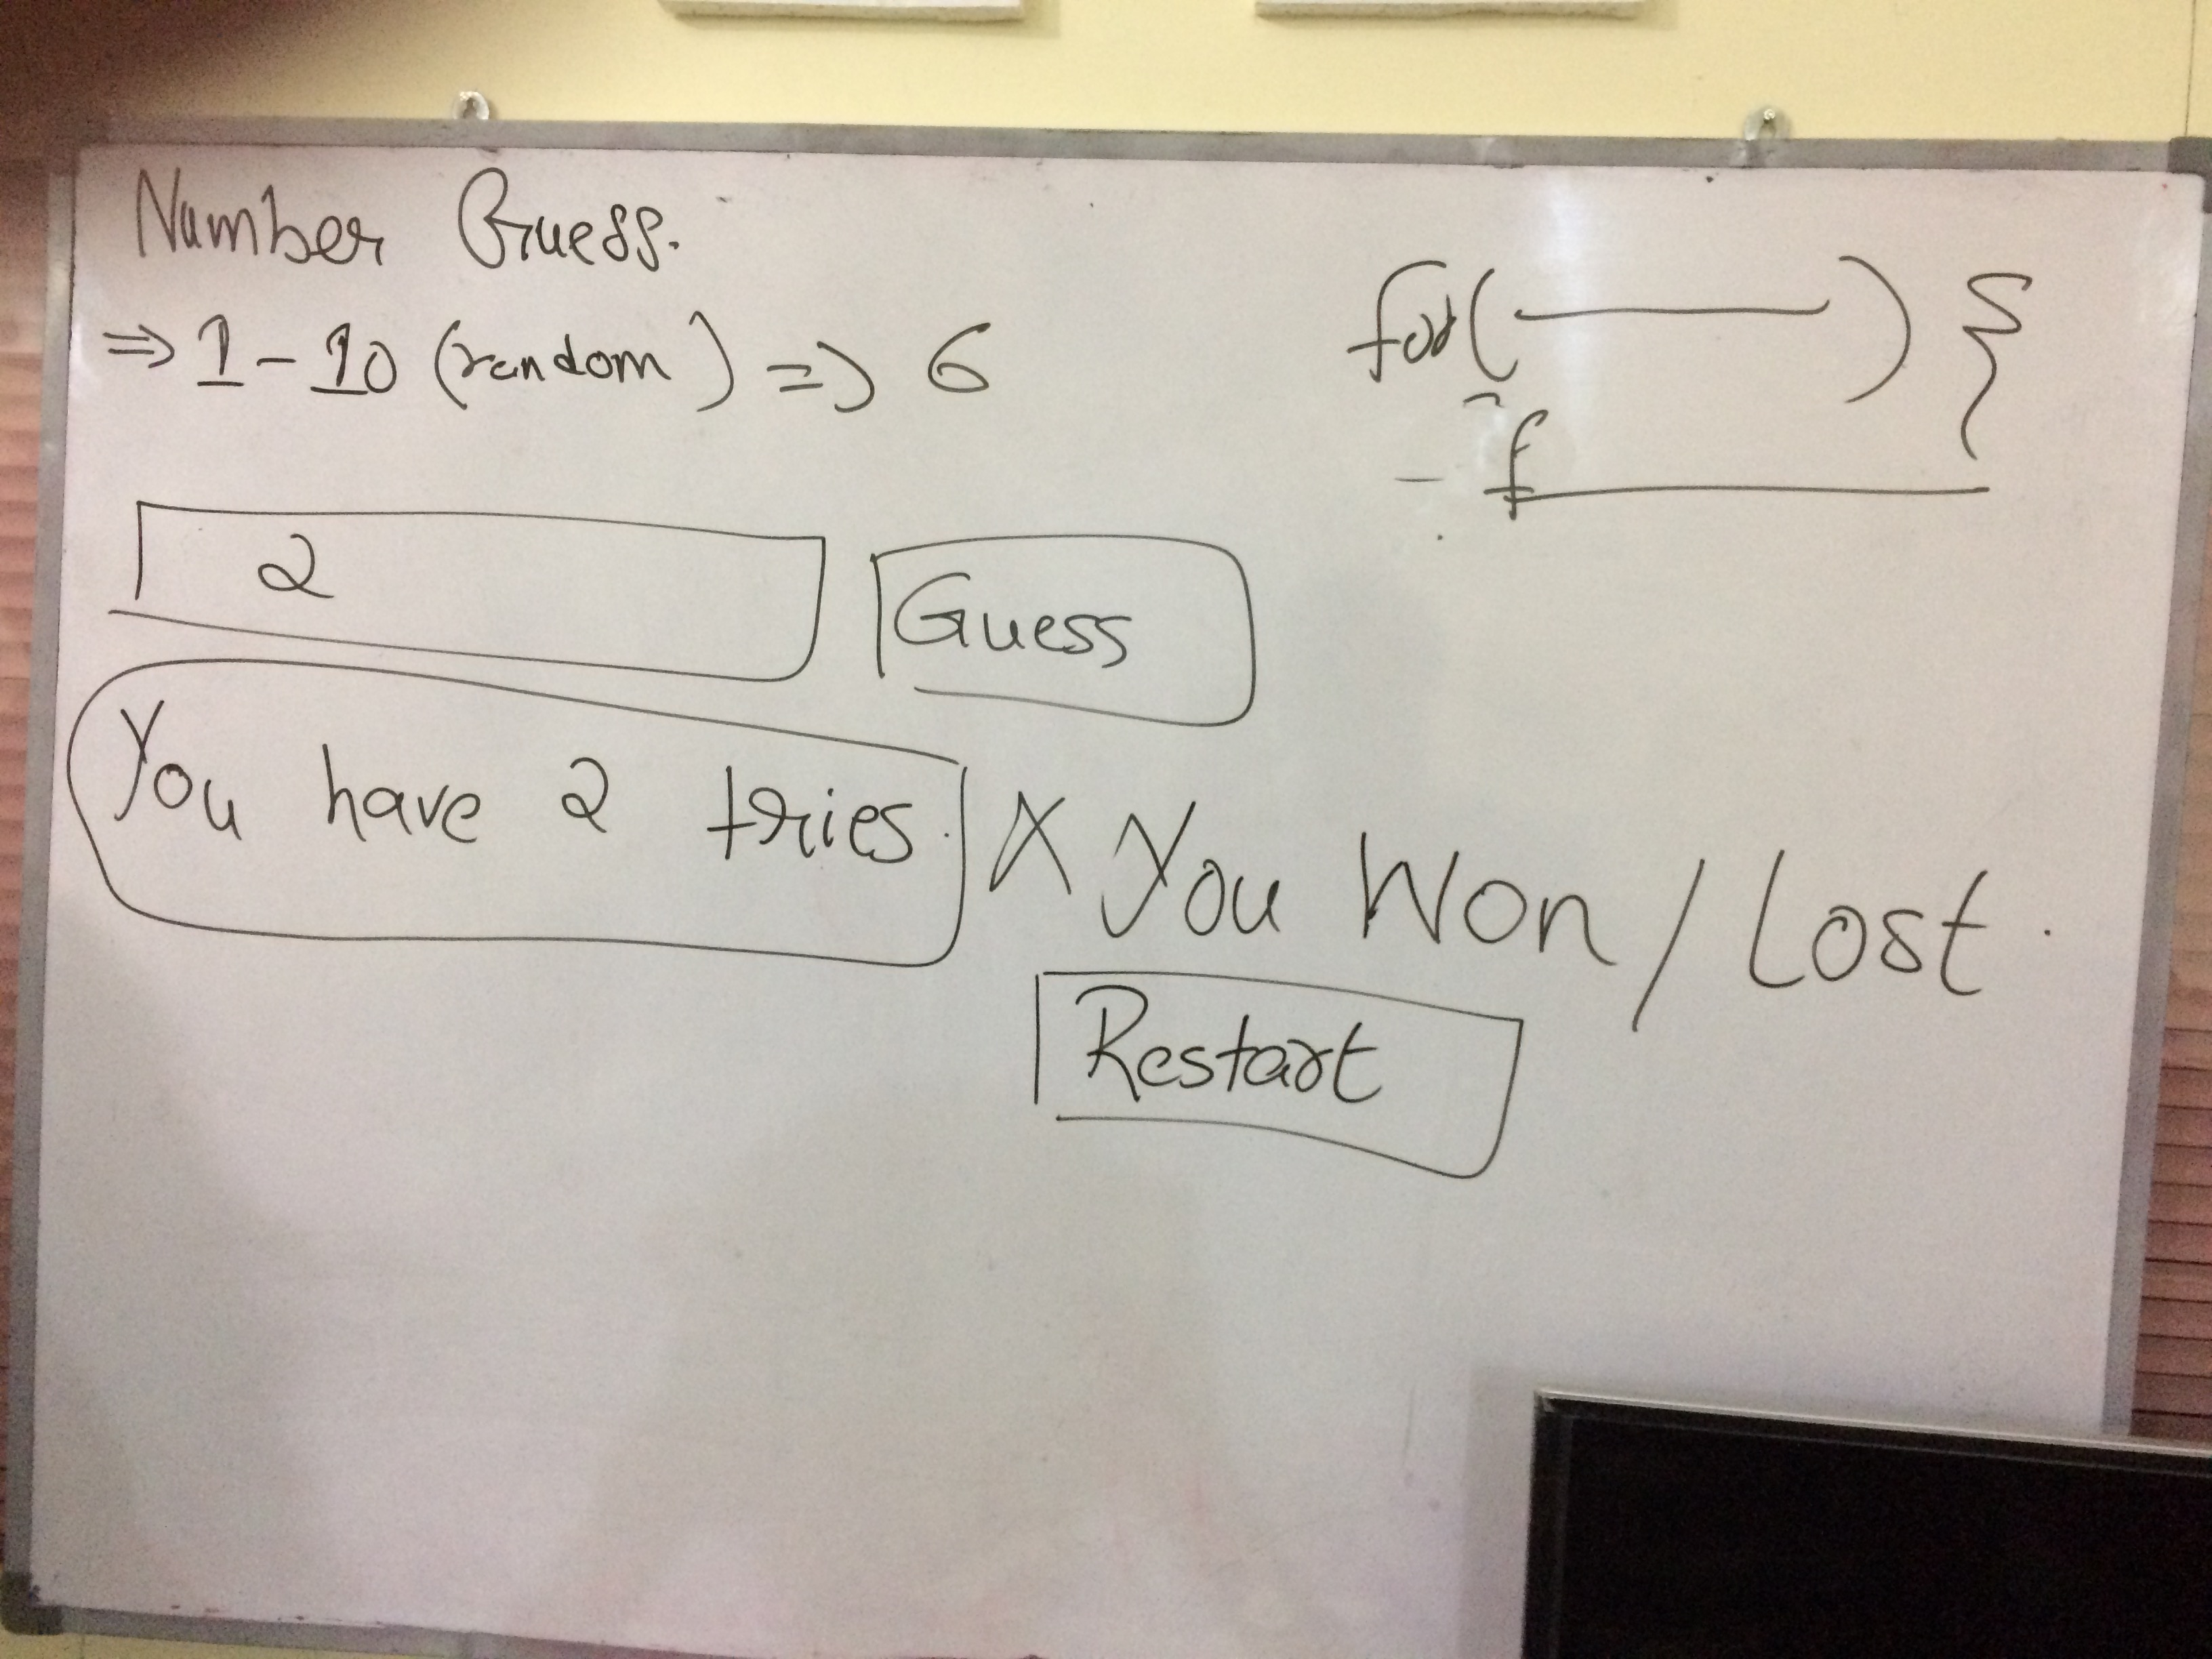 Number Guess.
⇒ 1 - 10 (random) => 6
for( ) {
2
Guess
You have 2 tries.
X You Won / Lost.
Restart